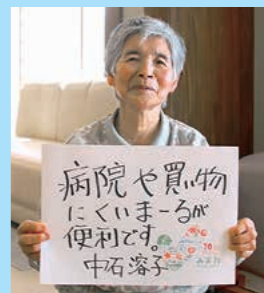 病院や買い物
にくいまーるが
便利です。
中石溶子